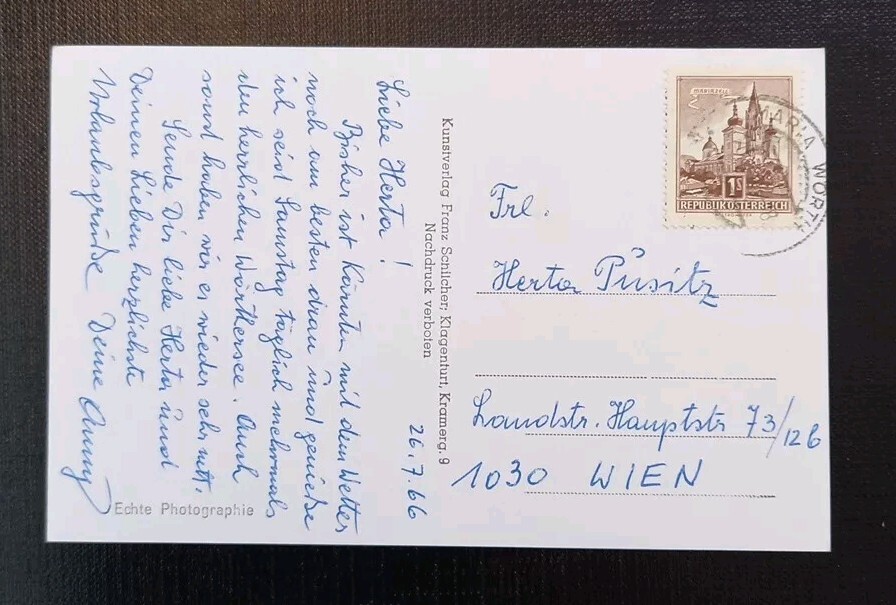 26.7.66
Liebe Herta!
Bisher ist Kärnten mit dem Wetter
noch am besten dran und genieße
ich seit Samstag täglich mehrmals
den herrlichen Wörthersee. Auch
sonst haben wir es wieder sehr nett.
Sende Dir liebe Herta und
Deinen Lieben herzlichste
Urlaubsgrüße Deine Anny
Echte Photographie
Kunstverlag Franz Schilcher, Klagenfurt, Kramerg. 9
Nachdruck verboten
MARIAZELL
1S
REPUBLIK ÖSTERREICH
MARIA WÖRTH
Frl.
Herta Pusitz
Landstr. Hauptstr 73/126
1030 WIEN